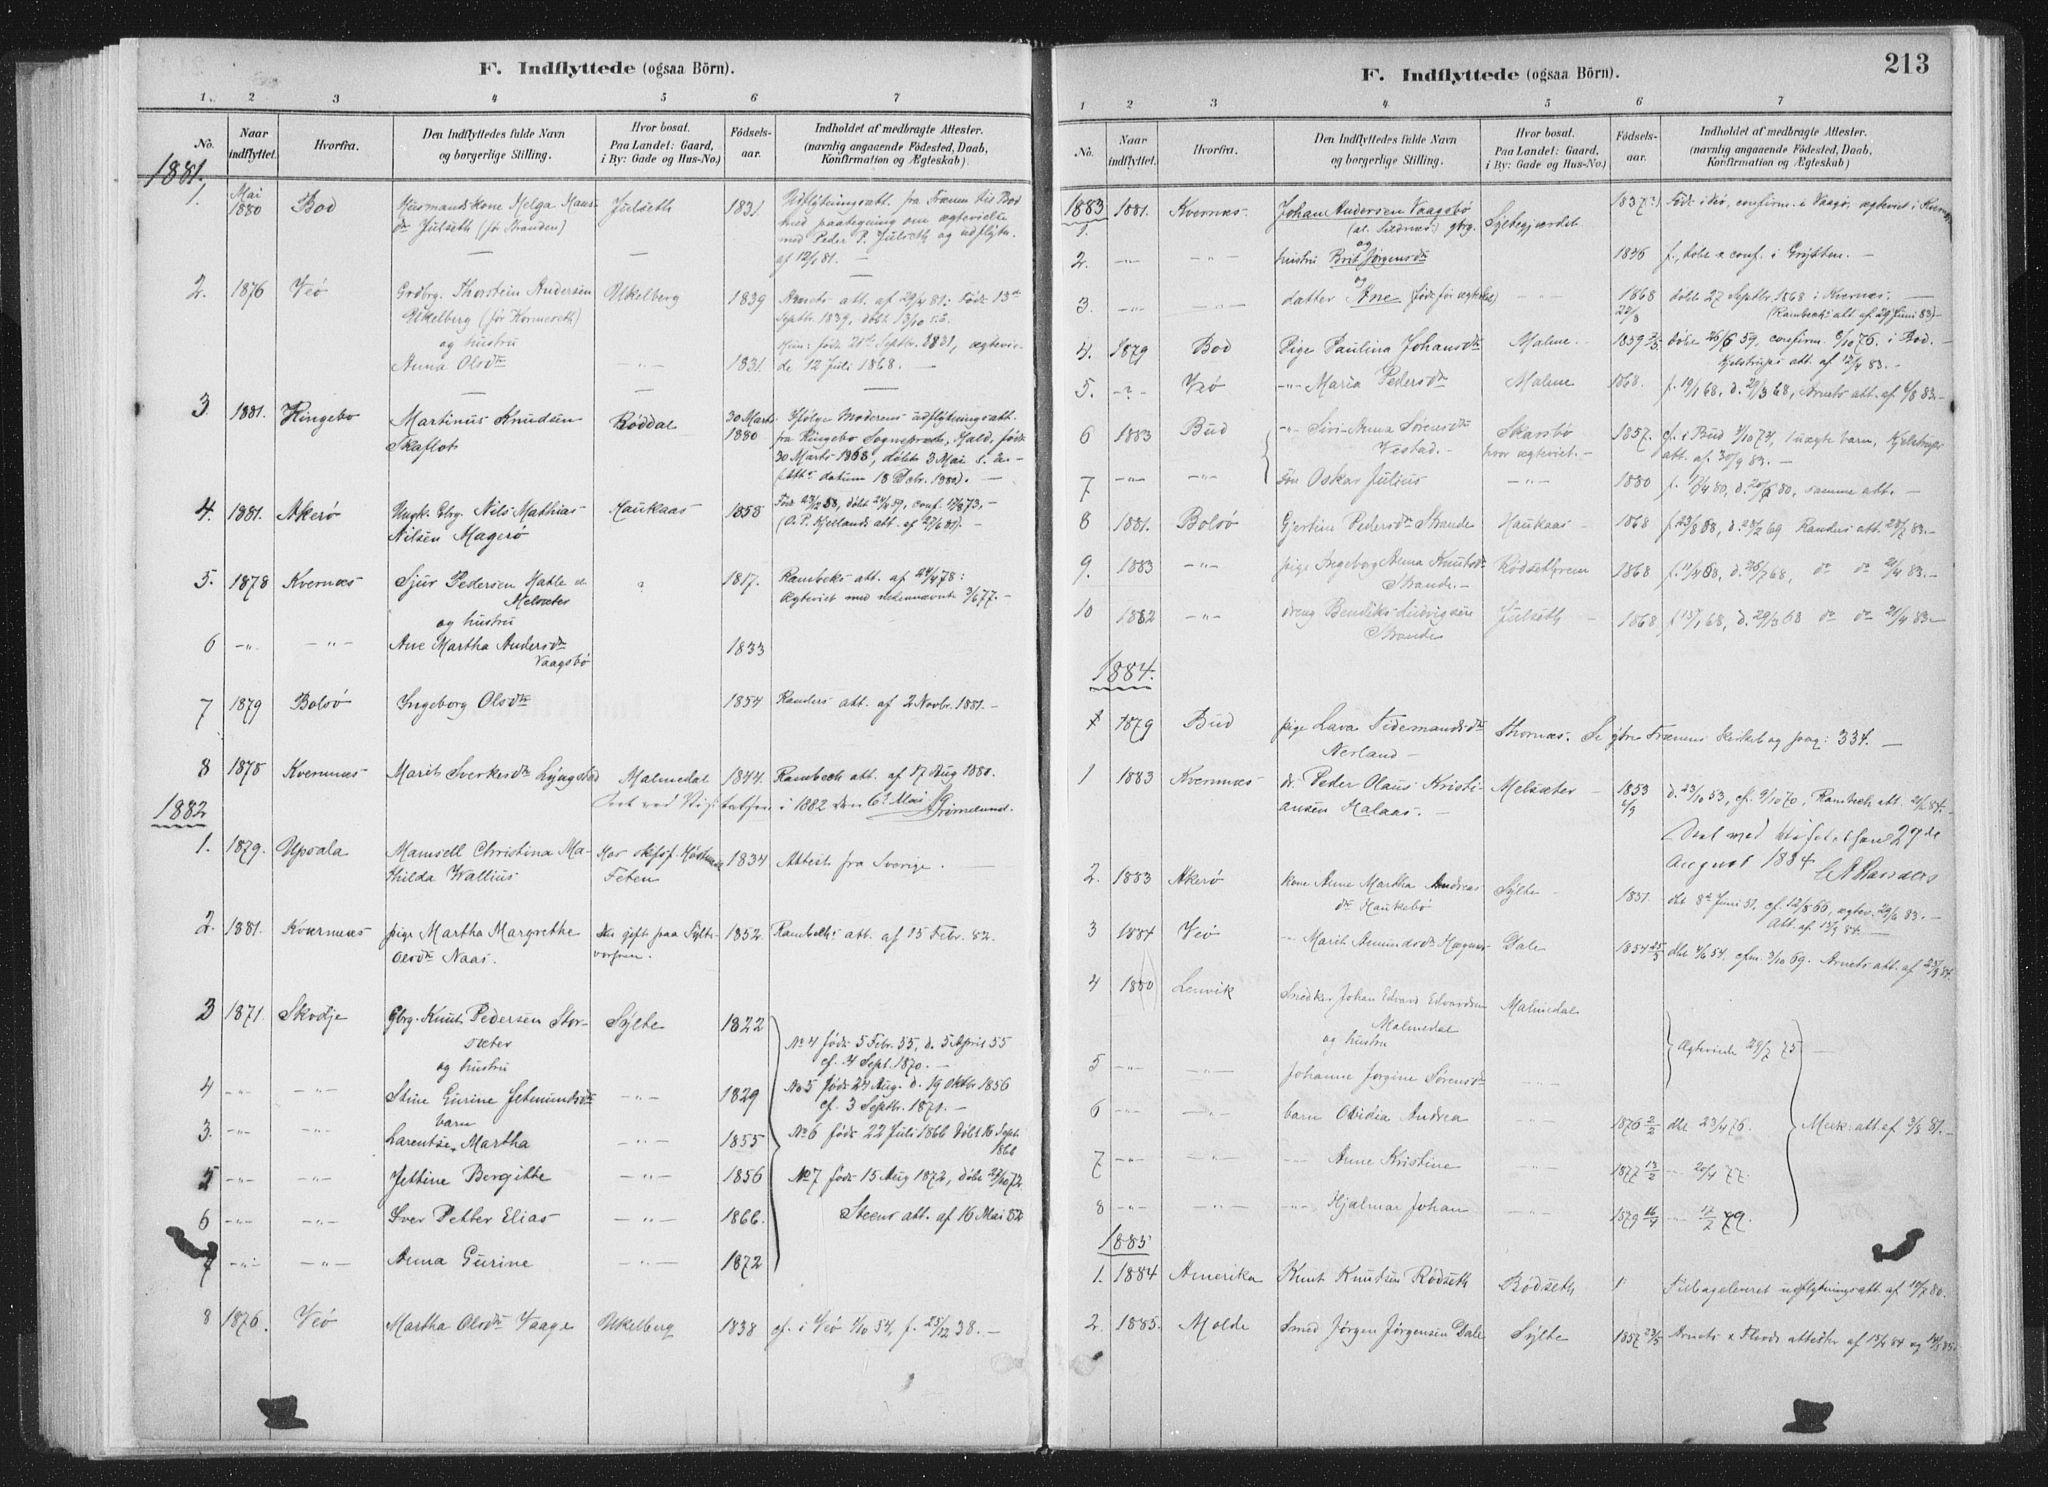 F. Indflyttede (ogsaa Börn).
1. 2 3 4 5 6 7
No. Naar indflyttet. Hvorfra. Den Indflyttedes fulde Navn og borgerlige Stilling. Hvor bosat. Paa Landet: Gaard, i By: Gade og Hus-No.) Fødsels-aar. Indholdet af medbragte Attester. (navnlig angaaende Fødested, Daab, Konfirmation og Ægteskab)
1881.
1, Mai 1880 Bod Husmandskone Helga Hans- Julseth 1831. Udflytningsatt. fra Frænen til Bod
dtr Julseth (før Branden) med paategning om ægtevielse
med Peder P. Julseth og udflytn.
af 12/1 81. —
2. 1876 Veö Grdbrg. Thorstein Andersen Ukelberg 1839 Arnets att. af 29/4 81: Född 13de
Eikelberg (før Hormereth) Septbr. 1839, döbt 13/10 s. å.
og hustru Hun: födt 21de Septbr. 1831, ægtevie-
Anna Olsdtr —"— 1831. de 12 Juli 1868. —
3 1881. Ringebo Martinus Knudsen Röddal 30 Marts Ifølge Moderens udflytningsatt.
Skaflot 1880 fra Ringebo Sognepræst, Hald, född
30 Marts 1868, döbt 3 Mai s. å. —
(Att. datum 18 Febr. 1880). —
4. 1881. Akerö Ungk. Nils Mathias Haukaas 1858 Född 23/12 58, döbt 24/4 59, conf. 17/8 73, —
Nilsen Magerö (O. P. Kjellands att. af 27/6 81) —
5. 1878 Kvernæs Sjur Pedersen Hatle " 1817. Rambeks att. af 24/4 78:
Melsæter Ægteviet med nedennævnte 3/6 77. —
og hustru
6 —"— —"— Ane Martha Andersdtr 1833
Vaagsbö
7 1879 Bolsö Ingeborg Olsdtr 1854 Randers att. af 2 Novbr. 1881. —
8 1878 Kvernæs Marit Sverkesdtr Lyngstad Malmedal 1844. Rambech att. af 17 Aug 1880.
Seet ved Visitatsen i 1882 den 6te Mai Grimelund.
1882
1. 1879. Upsala Mamsell Christina Ma- Hos 1834 Attest fra Sverige. —
thilda Wallius Feten
2. 1881. Kvernæs pige Martha Margrethe gift paa Sylte- 1852. Rambechs att. af 15 Febr. 82.
Olsdtr Naas.
3 1871. Skodje Gbrg. Knut Pedersen Stor- Sylte 1822
sæter No 4 född 5 Febr. 55, d. 5 April 55
og hustru cf. 4 Sept. 1870. —
4 —"— —"— Stine Gurine Jetmundsdtr —"— 1829 No 5 född 27 Aug. d. 19 Oktbr 1856
barn cf. 3 Septbr. 1871. —
3. —"— —"— Larentse Martha —"— 1855 No 6 född 22 Juli 1866 döbt 16 Septr
1866
5 —"— —"— Jettine Bergitte —"— 1856 No 7 född 15 Aug 1872, döbt 27/10 72.
6 —"— —"— Iver Petter Elias —"— 1866. Steens att. af 16 Mai 82
7 —"— —"— Anna Gurine —"— 1872
8 1876. Veö Martha Olsdtr Vaage Ukelberg 1838 cf. i Veö 1/10 54, f. 25/12 38. —
213
F. Indflyttede (ogsaa Börn).
1 2 3 4 5 6 7
No. Naar indflyttet. Hvorfra. Den Indflyttedes fulde Navn og borgerlige Stilling. Hvor bosat. Paa Landet: Gaard, i By: Gade og Hus-No.) Fødsels-aar. Indholdet af medbragte Attester. (navnlig angaaende Fødested, Daab, Konfirmation og Ægteskab).
1883
1. 1881. Kvernæs. Johan Andersen Vaagsbö Syltegjærdet 1837 Född i Veö, confirm. i Vaagö, ægteviet i Kvernæs
gbrg.
og
2. —"— —"— hustru Brit Jörgensdtr 1836 f., döbt & conf. i Grytten. —
og
3. —"— —"— datter Ane (född før ægteskab) —"— 1868 22/8 döbt 27 Septbr. 1868 i Kvernæs. —
(Rambechs att. af 29 Juni 83) —
4. 1879 Bod Pige Paulina Johansdtr Malme. 1859 döbt 26/6 59, confirm. 8/10 76. i Bod. —
Kjelstrups att. af 12/4 83. —
5. —?— Veö —"— Maria Pedersdtr Malme 1868. f. 19/1 68, d. 29/3 68, Arnets att. af 4/8 83. —
6 1883 Bud —"— Siri-Anna Sörensdtr Skarsbö 1857. cf. i Bud 4/10 74, 1 uægte barn, Kjelstrups
Vestad. — hvor ægteviet. — att. af 30/9 83. —
7 —"— —"— Sön Oskar Julius —"— 1880 f. 17/4 80, d. 20/6 80, samme att. —
8 1881. Bolsö Gjertine Pedersdtr Strande Haukaas 1868 f. 23/8 68, d. 28/2 69 Randers att. 28/7 83. —
9. 1883 —"— pige Ingeborg Anna Knutsdtr Rödsethrem 1868 f. 11/4 68, d. 26/7 68, do do 21/4 83. —
Strande. —
10 1882 —"— dreng Bendik Ludvigsen Julseth 1868 f. 15/1 68, d. 29/3 68 do do 21/4 83. —
Strande
1884.
1 1879 Bud pige Lava Tidemandsdtr Thornæs. Se ytre Frænens Kirkebog pag: 334. —
Nerland —
1 1883 Kvernæs dr. Peder Olaus Kristi- Melsæter 1853 6/9 d. 23/10 53, cf. 9/10 70, Rambech att. 2/2 84. —
ansen Malaas. — Seet ved Visitatsen 29de
August 1884 Randers
2. 1883 Akerö kone Anne Martha Andreas Sylte 1851. döbt 8de Juni 51. cf. 12/8 66, ægtev. 29/6 83. —
dtr Haukebö Att. af 13/9 84. —
3 1884 Veö —"— Marit Amundsdtr Dale 1854 25/5 döbt 4/6 54, cfm. 3/10 69. Arnets att. af 25/9 84.
4 1880 Lenvik Snedker Johan Edvard Edvardsen Malmedal
Malmedal
og hustru Ægteviede 29/7 75 —
5 —"— —"— Johanne Jorgine Sörensdtr —"—
6 —"— —"— barn Ovidia Andrea —"— 1876 2/2 döbt 23/4 76. Meek: att. af 3/8 81. —
7 —"— —"— —"— Anne Kristine —"— 1877 13/2 —"— 20/4 77.
8 —"— —"— —"— Hjalmar Johan —"— 1879 —"— 79.
1885
1. 1884 Amerika Knut Knutsen Rödseth Rödseth " Tilbageleveret udflytningsatt. af 12/7 80.
2. 1885. Molde Smed Jörgen Jörgensen Dale Sylte 1857 23/5 Arnets & Floods attester af 13/4 84 og 14/3 85.